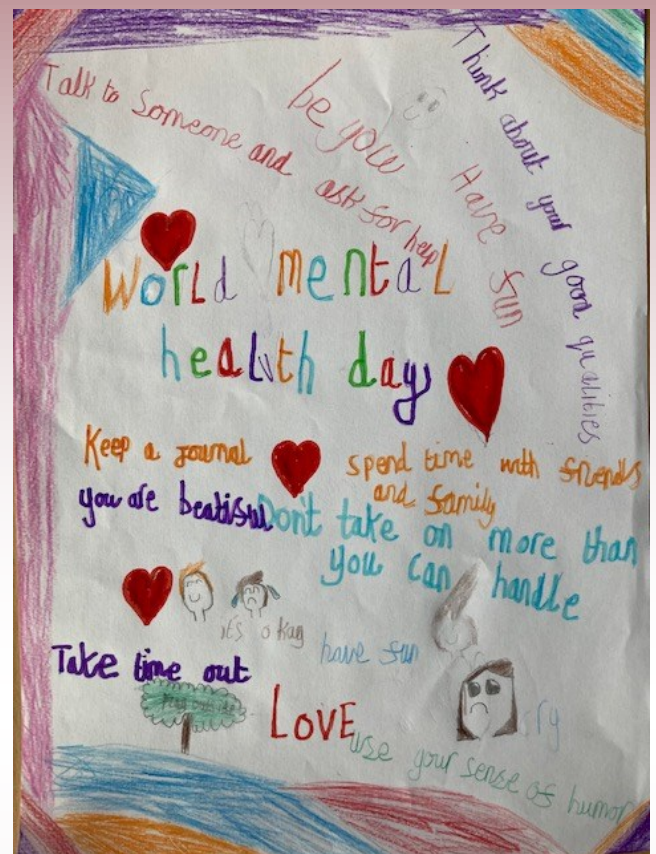 Talk to Someone and ask for help
be you
Think about your good qualities
Have fun
World mental
health day
Keep a journal
spend time with friends
and family
you are beatiful
Don't take on more than
you can handle
it's okay
have fun
Take time out
LOVE
use your sense of humor